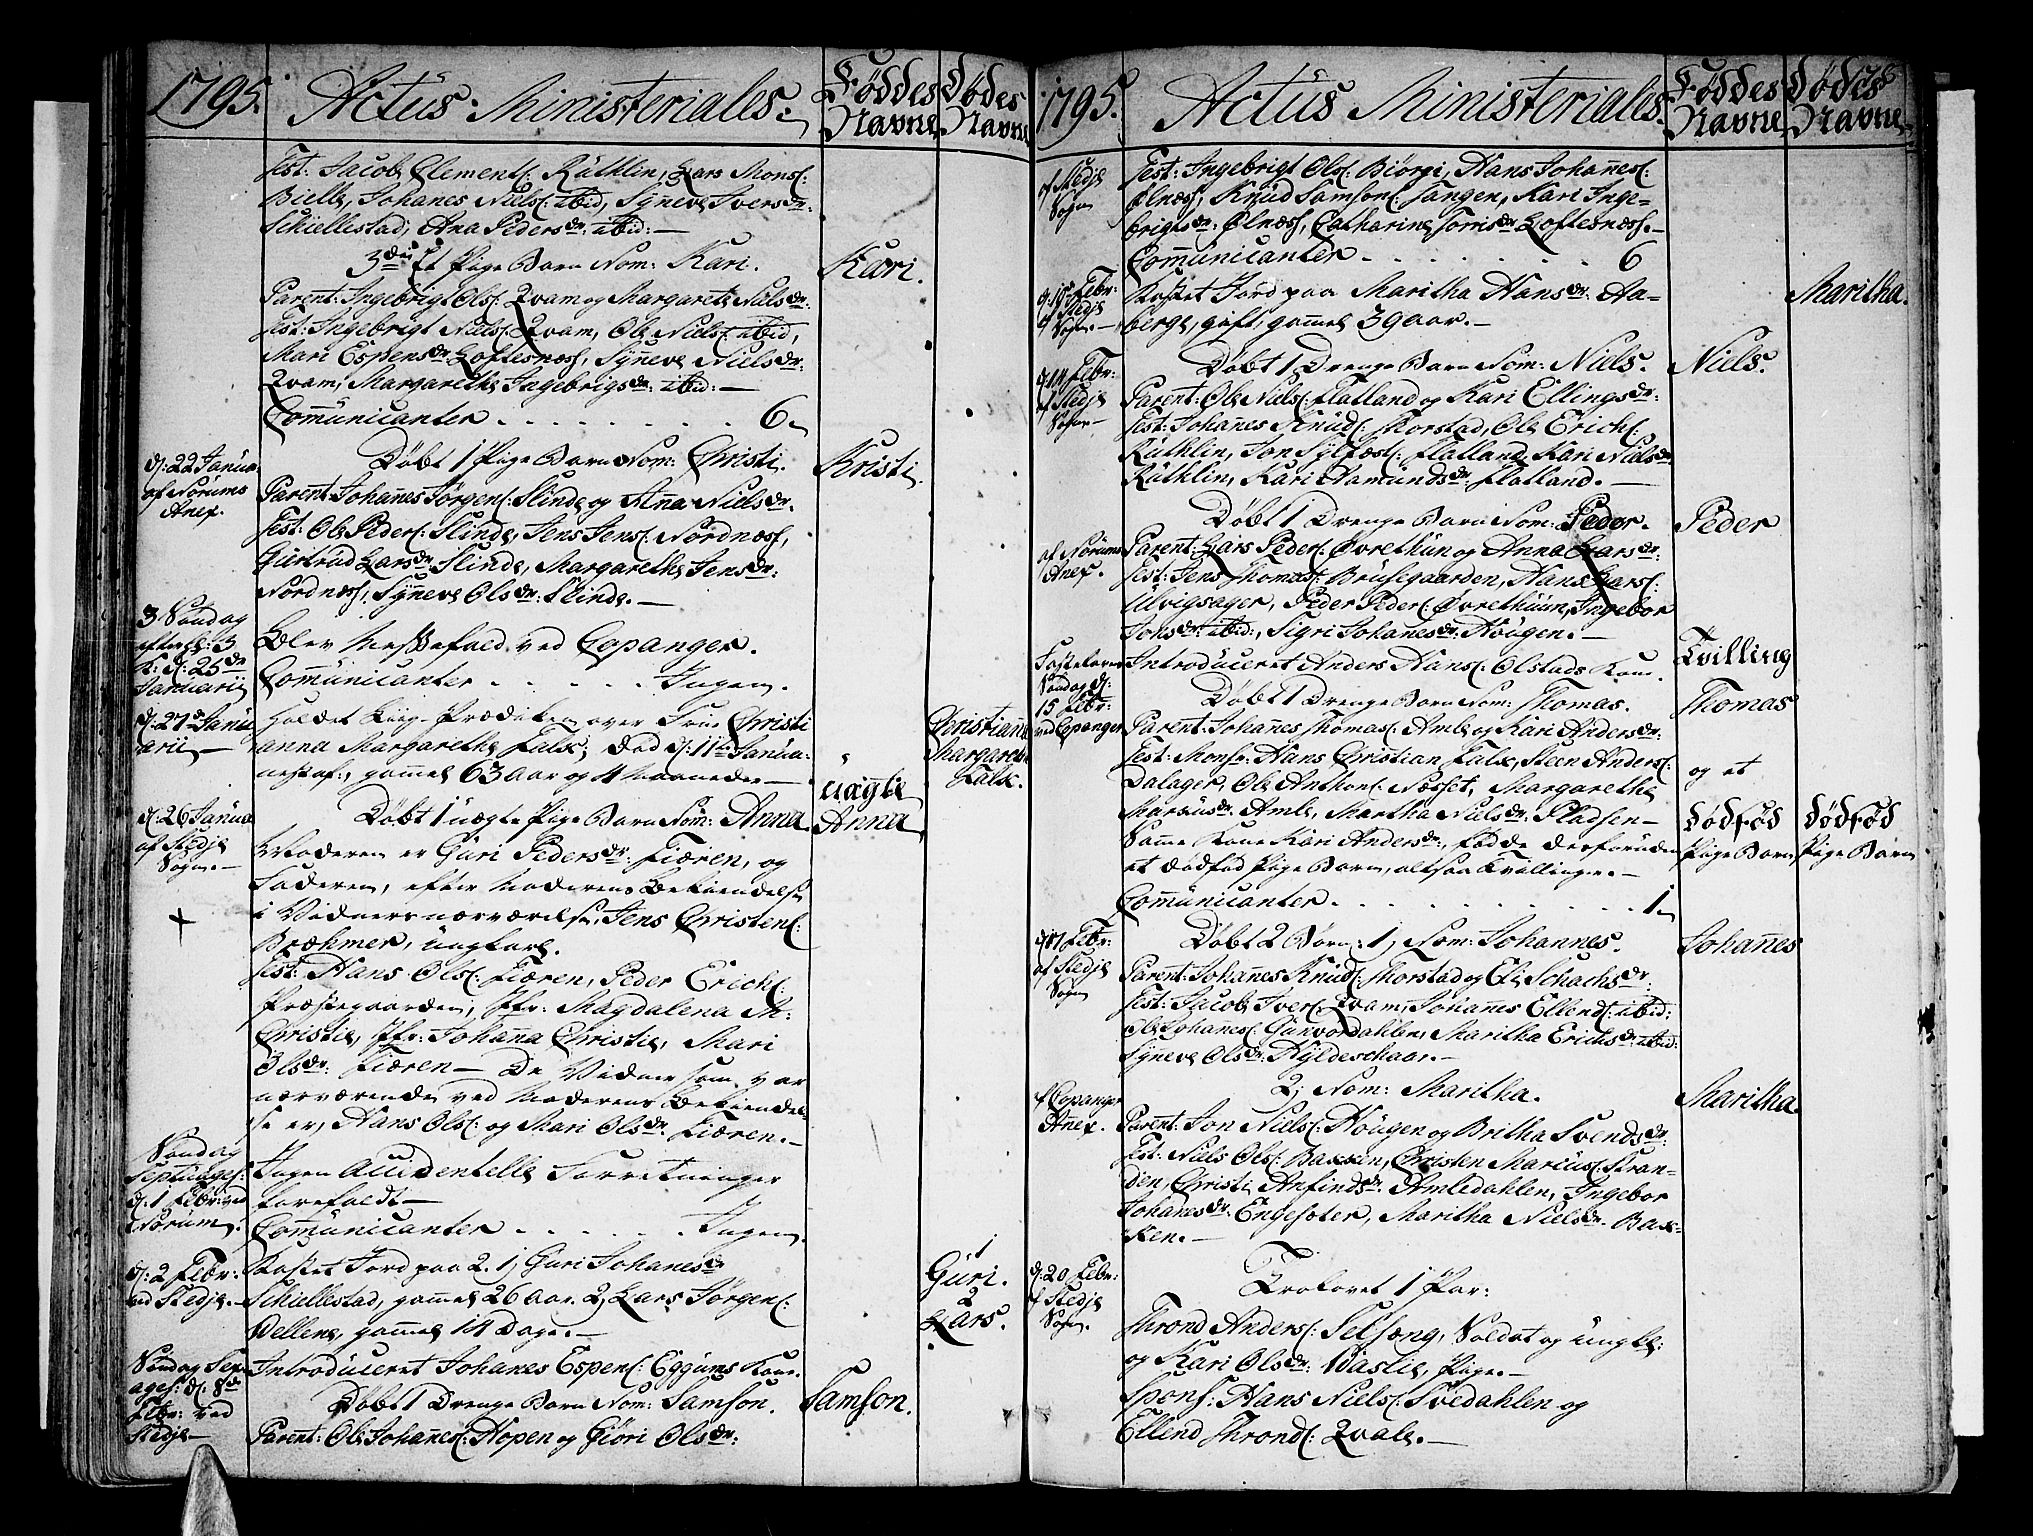 1795. Actus Ministeriales. Föddes Navne Dödes Navne
Test: Jacob Clements: Rüthlin, Lars Mons:
Bielle, Johanes Niels: ibid, Syneve Ivers dr:
Schiellestad, Ana Peders dr: ibid: —
3die Et Pige Barn Nom: Kari. Kari.
Parent: Ingebrigt Ols: Qvam og Margarete Niels dr:
Test: Ingebrigt Niels: Qvam, Ole Niels: ibid,
Mari Espens dr: Loftesnæss, Syneve Niels dr:
Qvam, Margarethe Ingebrigs dr: ibid: —
Com̄unicanter . . . . . . . . . 6
d: 22 Janua: af Norums Anex.
Döbt 1 Pige Barn Nom: Christi. Kristi.
Parent: Johan̄es Jörgens: Slinde og Anna Niels dr:
Test: Ole Peders: Slinde, Jens Jens: Nordnæss,
Giertrud Lars dr: Slinde, Margarethe Jens dr:
Nordnæss, Syneve Ols dr: Slinde. —
3 Söndag efter H: 3 K: d: 25de Januarii
Blev Messefald ved Copanger.
Com̄unicanter . . . . . Ingen.
d: 27de Janu arii —
Holdet Liig-Prædiken over Frue Christi
anna Margarethe Falk, död d: 11te Janua:
nestaf:, gam̄el 63 Aar og 4 Maaneder —
Christian̄a Margarethe Falk.
d: 26 Janua af Stedje Sogn. —
Döbt 1 uægte Pige Barn Nom: Anna. uægte Anna
Moderen er Guri Peders dr: Fiæren, og
Faderen, efter Moderens Bekiendelse
i Vidners nærværelse, Jens Christens:
Bræhmer, ungkarl.
Test: Hans Ols: Fiæren, Peder Erichs:
Præstegaarden, Jfr: Magdalena M:
Christie, Jfr: Johan̄a Christie, Mari
Ols dr: Fiæren — De Vidner som var
nærværende ved Moderens Bekiendel-
se er, Hans Ols: og Mari Ols dr: Fiæren. —
Söndag Septuages: d: 1 Febr: ved Norum.
Ingen Accidentelle Forretninger
forefaldt —
Com̄unicanter . . . . . Ingen.
d: 2 Febr: ved Stedje. —
Kastet Jord paa 2. 1, Guri Johanes dr
Schiellestad, gam̄el 26 Aar. 2, Lars Jörgens:
Vellene, gam̄el 14 Dage. —
1 Guri. 2 Lars.
Söndag Sex ages: d: 8de Febr: ved Stedje —
Introduceret Johanes Espens: Eggums Kone.
Döbt 1 Drenge Barn Nom: Samson. Samson.
Parent: Ole Johan̄es: Hopen og Giöri Ols dr:
1795. Actus Ministeriales. Föddes Navne Dödes Navne
af Stedje Sogn
Test: Ingebrigt Ols: Biörgi, Hans Johan̄es:
Ølnæss, Knud Samsons: Tangen, Kari Inge-
brigts dr: Ølnæss, Catharine Torris dr: Loftesnæss. —
Com̄unicanter . . . . . . . . 6
Febr: af Stedje Sogn —
Kastet Jord paa Maritha Hans dr: Aa-
berge, gift, gam̄el 39 aar. — Maritha.
d: 14 Febr: af Stedje Sogn —
Döbt 1 Drenge Barn Nom: Niels. Niels.
Parent: Ole Niels: Flatland og Kari Ellings dr:
Test: Johan̄es Knuds: Thorstad, Ole Erichs:
Rüthlin, Jon Sylfæs: Flatland, Kari Niels dr:
Rüthlin, Kari Aamunds dr: Flatland. —
Döbt 1 Drenge Barn Nom: Peder. Peder
af Norums Anex.
Parent: Lars Peders: Øvrethun og Anna Lars dr:
Test: Jens Thomas: Brusegaarden, Hans Lars:
Ulvigsager, Peder Peders: Øvrethuun, Ingebor
Jons dr: ibid:, Sigri Johanes dr: Hougen. —
Fastelavns Söndag d: 15 Febr: ved Copanger
Introduceret Anders Hans: Olstads Kone.
Döbt 1 Drenge Barn Nom: Thomas. Tvilling Thomas
Parent: Johan̄es Thomas: Amle og Kari Anders dr:
Test: Monsr: Hans Christian Falk, Steen Anders:
Dalager, Ole Anthons: Næsset, Margarethe
Marcus dr: Amle, Martha Niels dr: Pladsen —
Samme Kone Kari Anders dr:, fødde desforuden
et dödföd Pige Barn, altsaa Tvillinger. —
og et dödföd Pige Barn dödföd Pige Barn
Com̄unicanter . . . . . . . . . 1
Febr: af Stedje Sogn
Döbt 2 Börn: 1, Nom: Johannes. Johan̄es
Parent: Johan̄es Knuds: Thorstad og Eli Schachs dr:
Test: Jacob Ivers: Qvam, Johan̄es Ellends: ibid:
Ole Johanes: Gunvordahlen, Maritha Erichs dr: ibid:
Syneve Ols dr: Hyldeschaar. —
2, Nom: Maritha. Maritha.
af Copanger Anex.
Parent: Jon Niels: Hougen og Britha Svends dr:
Test: Niels Ols: Bakken, Christen Marcus: Stran-
den, Christi Anfinds dr: Amledahlen, Ingebor
Johanes dr: Engesæter, Maritha Niels dr: Bak-
ken. —
d: 20 Febr: af Stedje Sogn.
Trolovet 1 Par:
Thrond Anders: Selseng, Soldat og Ungkl:
og Kari Ols dr: Vastie, Pige. —
Spons: Hans Niels: Svedahlen og
Ellend Thronds: Qvale. —